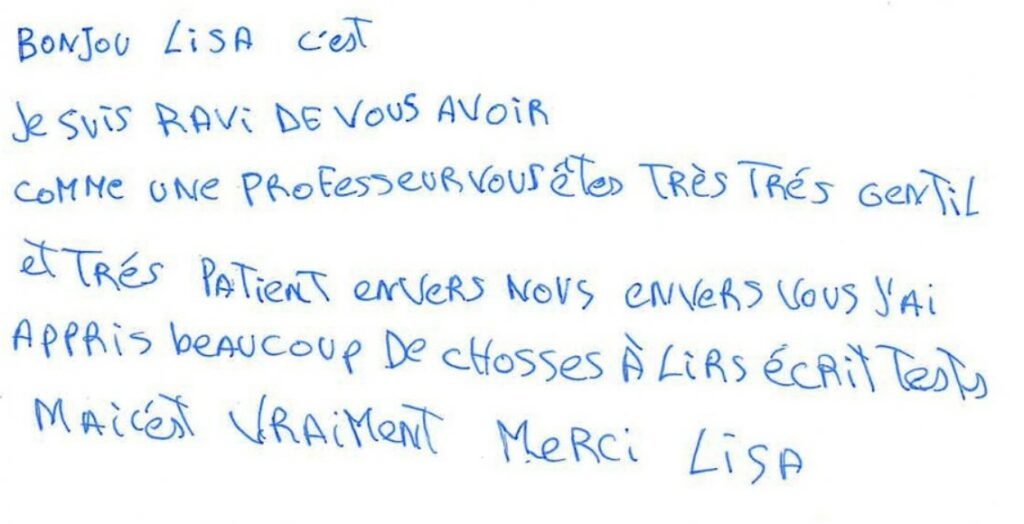 BONJOU LISA c'est
Je suis RAVI DE VOUS AVOIR
COMME UNE PROFESSEUR VOUS êtes TRÈS TRÉS GENTIL
et TRÉS PATIENT ENVERS NOUS ENVERS VOUS J'AI
APPRIS beAUCOUP De CHOSSES À LIRS ÉCRIT TesTs
MAIC'EST VRAIMENT MERCI LISA